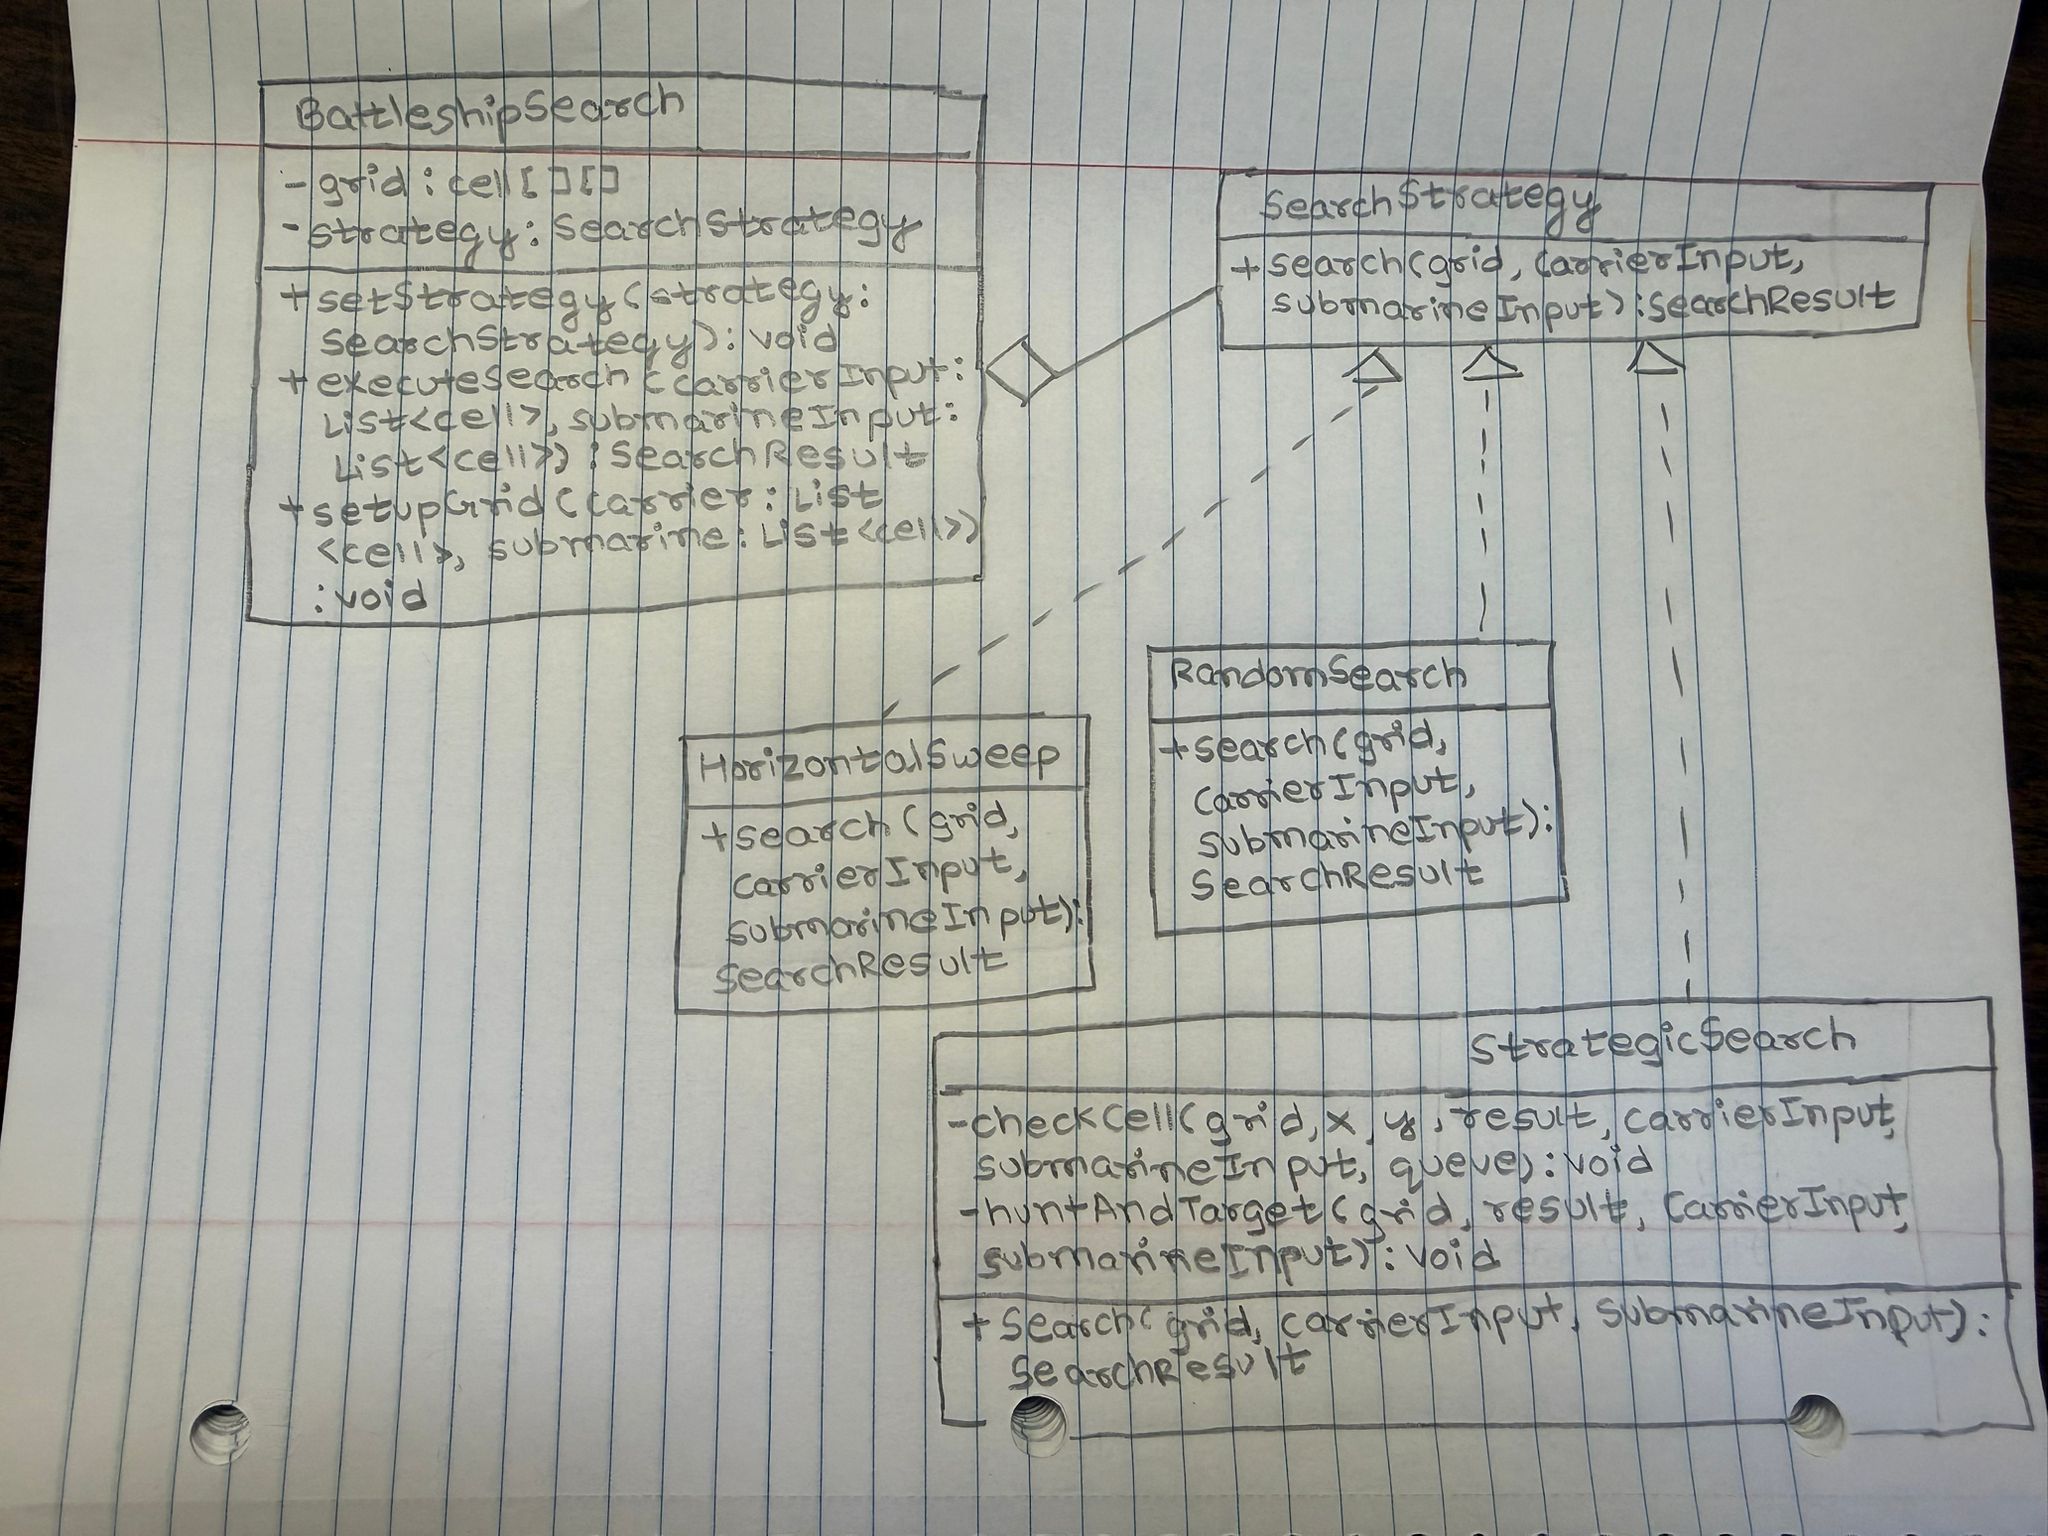 BattleshipSearch
- grid : cell[][]
- strategy: SearchStrategy
+ setStrategy (strategy:
SearchStrategy): void
+ executeSearch (carrierInput:
List<cell>, submarineInput:
List<cell>) : SearchResult
+ setupGrid (carrier: List
<cell>, submarine: List<cell>)
: void
SearchStrategy
+ search(grid, carrierInput,
submarineInput) : SearchResult
HorizontalSweep
+ search (grid,
carrierInput,
submarineInput):
SearchResult
RandomSearch
+ search(grid,
carrierInput,
submarineInput):
SearchResult
StrategicSearch
- checkCell(grid, x, y, result, carrierInput,
submarineInput, queue): void
- huntAndTarget(grid, result, carrierInput,
submarineInput): void
+ search(grid, carrierInput, submarineInput):
SearchResult